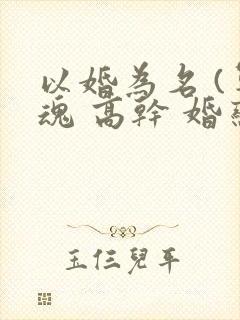 以婚為名(
魂 高幹 婚
玉仨兒平